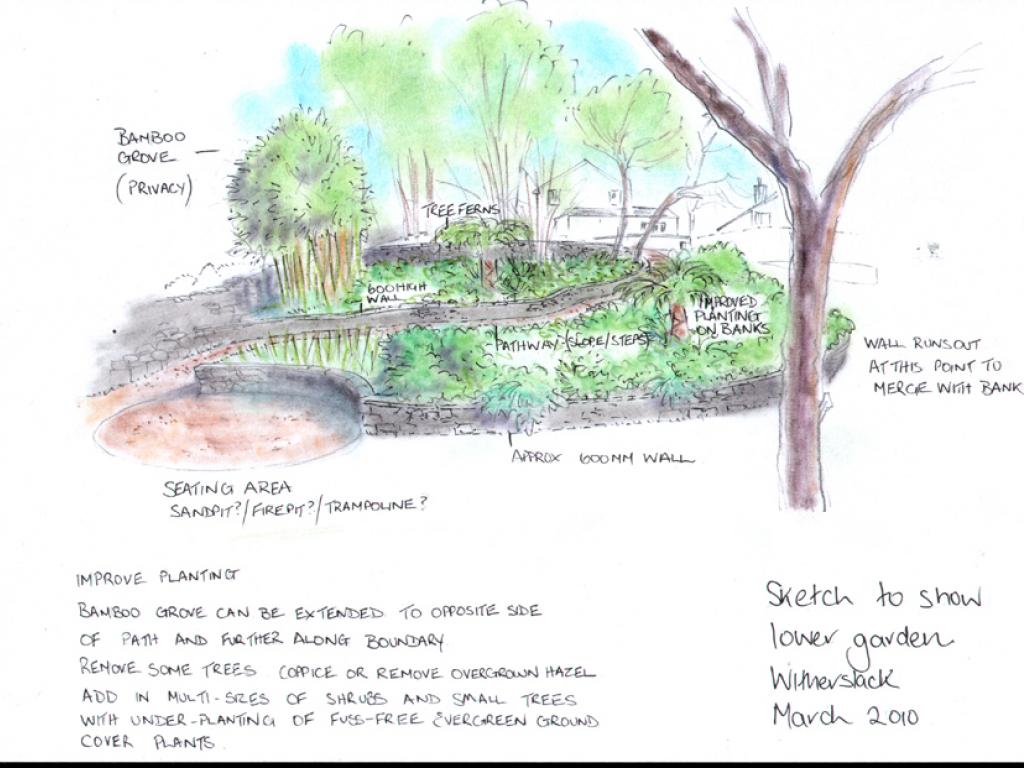 BAMBOO
GROVE
(PRIVACY)
TREE FERNS
600 HIGH
WALL
IMPROVED
PLANTING
ON BANKS
PATHWAY (SLOPE/STEPS)
WALL RUNS OUT
AT THIS POINT TO
MERGE WITH BANK
APPROX 600MM WALL
SEATING AREA
SANDPIT?/FIREPIT?/TRAMPOLINE?
IMPROVE PLANTING
BAMBOO GROVE CAN BE EXTENDED TO OPPOSITE SIDE
OF PATH AND FURTHER ALONG BOUNDARY
REMOVE SOME TREES COPPICE OR REMOVE OVERGROWN HAZEL
ADD IN MULTI-SIZES OF SHRUBS AND SMALL TREES
WITH UNDER-PLANTING OF FUSS-FREE EVERGREEN GROUND
COVER PLANTS.
Sketch to show
lower garden
Witherslack
March 2010